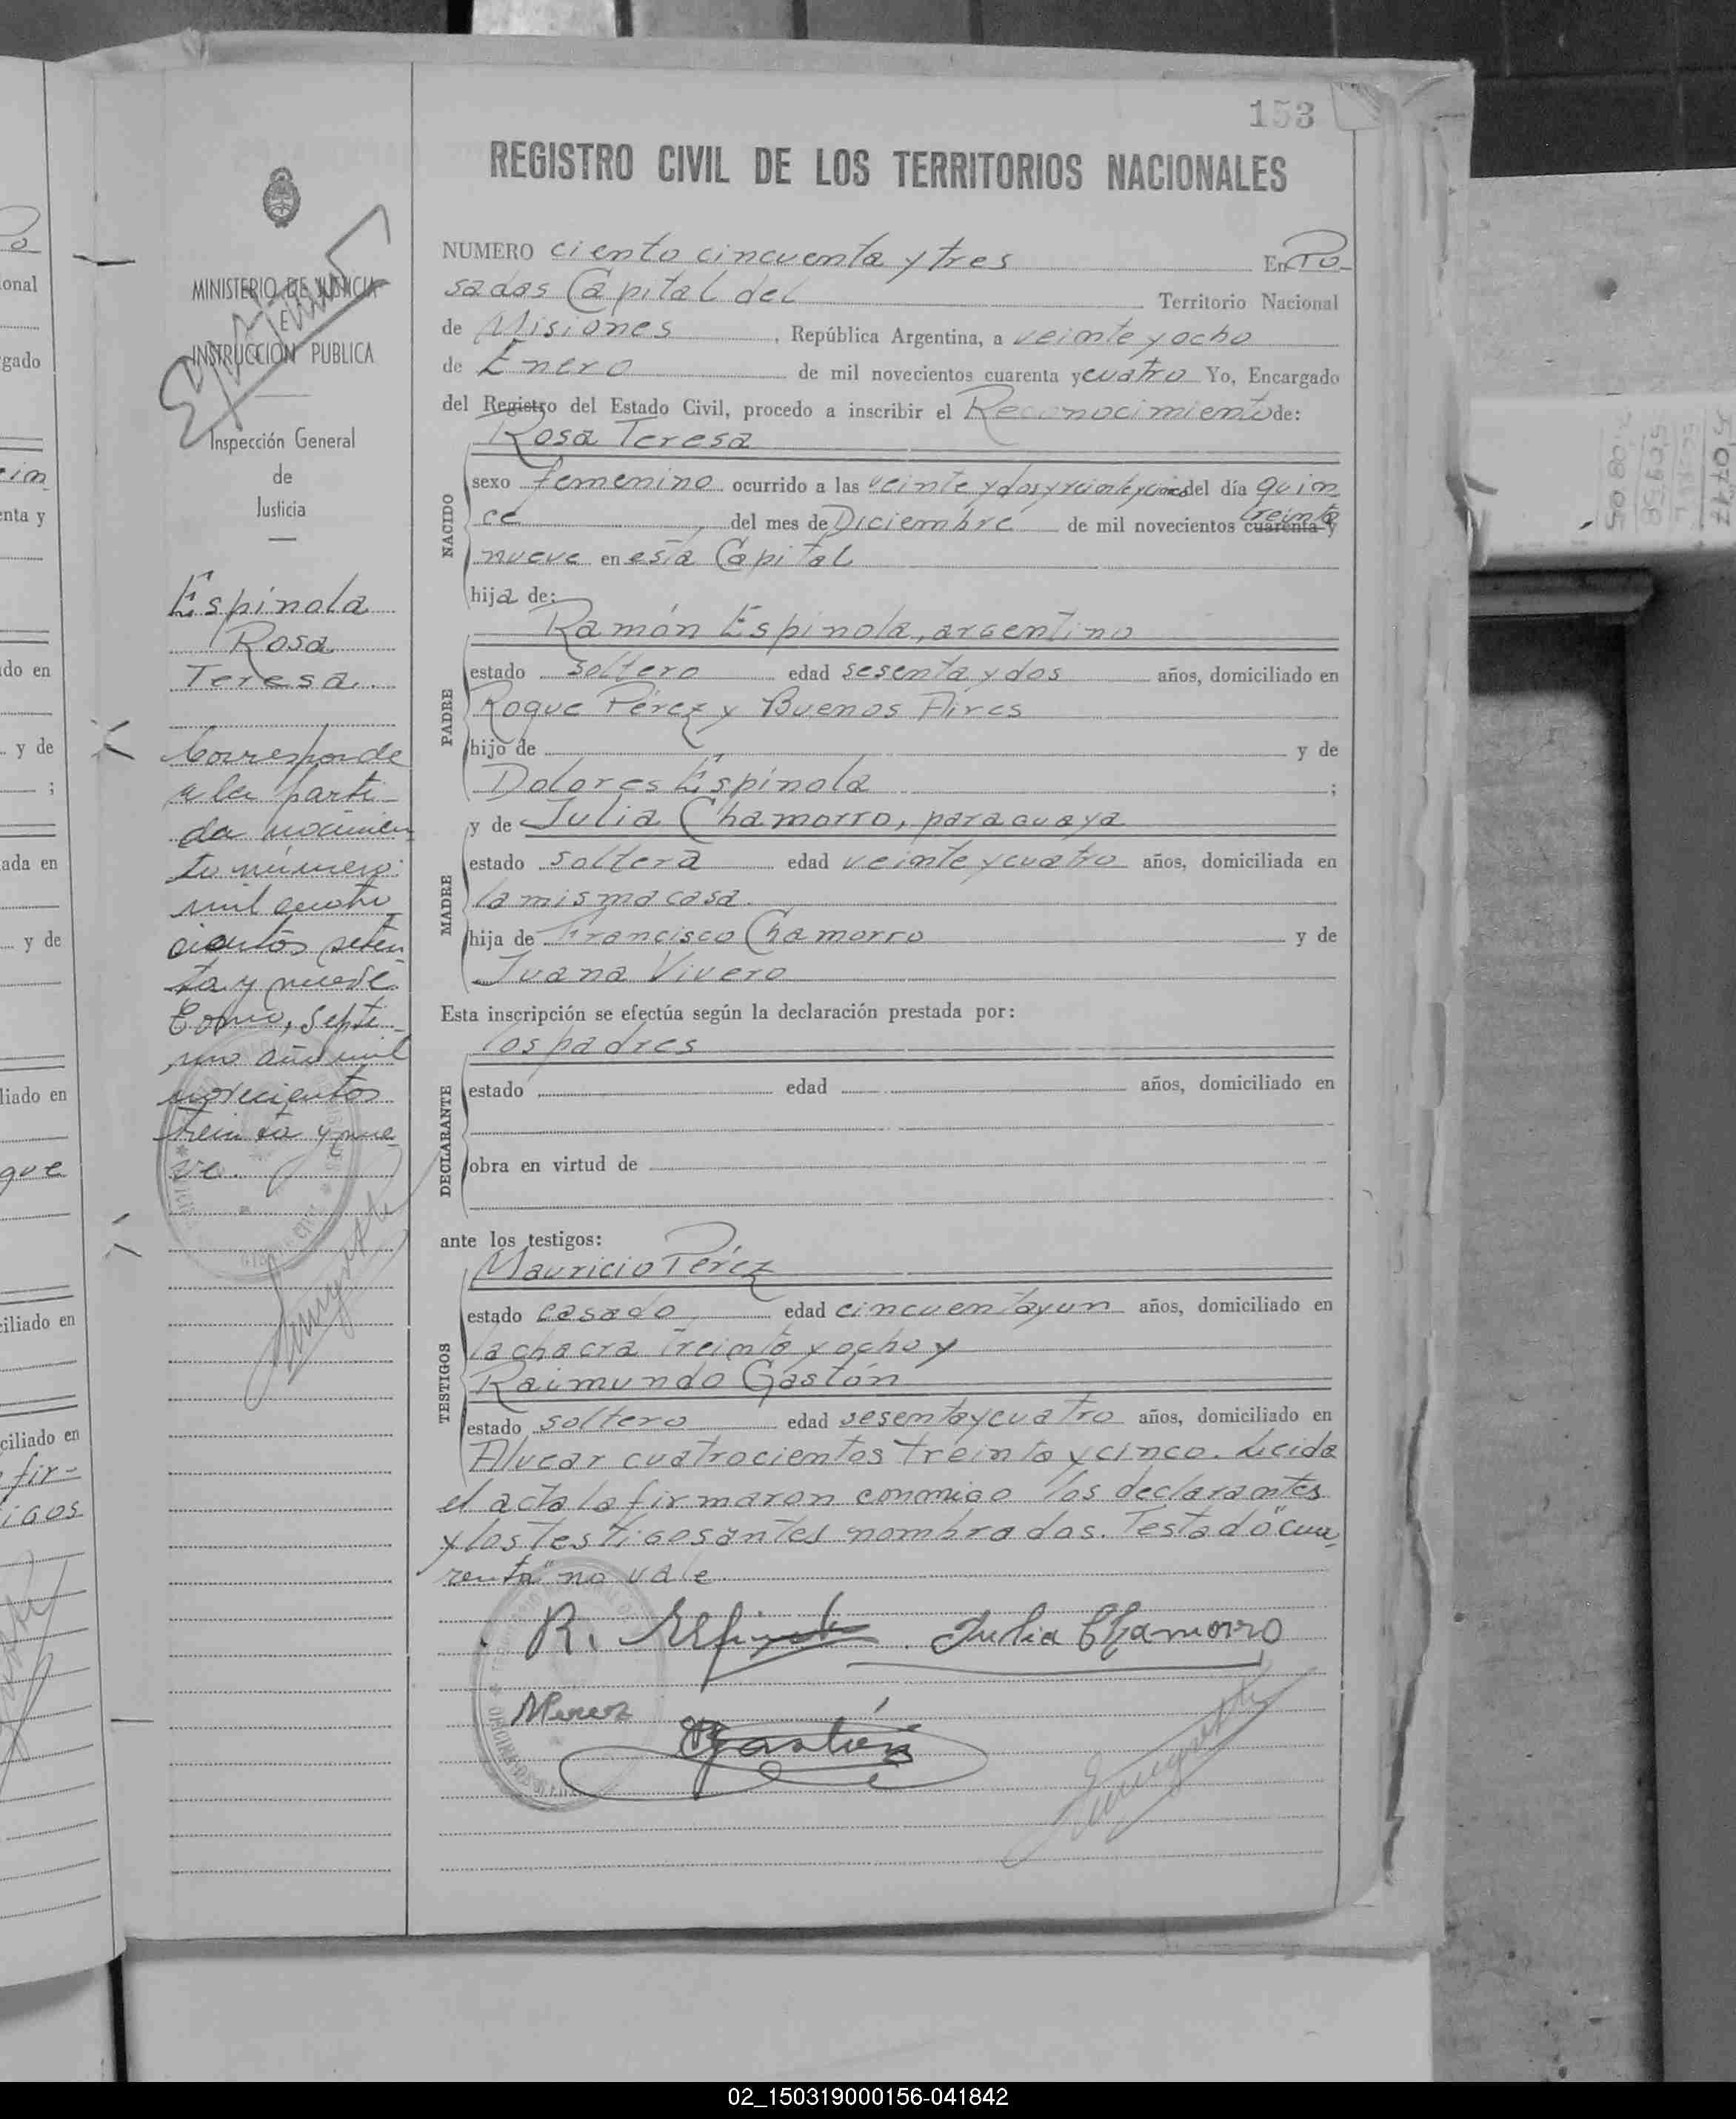 153
REGISTRO CIVIL DE LOS TERRITORIOS NACIONALES
MINISTERIO DE JUSTICIA
E
INSTRUCCIÓN PUBLICA
Inspección General
de
Justicia
Espínola
Rosa
Teresa
Corresponde
a la parti-
da nacimien
to número
mil cuatro
cientos seten
ta y nueve
Tomo, Septi-
mo año mil
novecientos
treinta y nue
ve.
NUMERO ciento cincuenta y tres En Po-
sadas Capital del Territorio Nacional
de Misiones, República Argentina, a veinte y ocho
de Enero de mil novecientos cuarenta y cuatro Yo, Encargado
del Registro del Estado Civil, procedo a inscribir el Reconocimiento de:
NACIDO
Rosa Teresa
sexo femenino ocurrido a las veinte y dos y veinte y del día quin
ce del mes de Diciembre de mil novecientos cuarenta y treinta
nueve en esta Capital
hija de:
PADRE
Ramón Espínola, argentino
estado soltero edad sesenta y dos años, domiciliado en
Roque Pérez y Buenos Aires
hijo de y de
Dolores Espínola ;
MADRE
y de Julia Chamorro, paraguaya
estado soltera edad veinte y cuatro años, domiciliada en
la misma casa.
hija de Francisco Chamorro y de
Juana Vivero
Esta inscripción se efectúa según la declaración prestada por:
DECLARANTE
los padres
estado edad años, domiciliado en
obra en virtud de
ante los testigos:
TESTIGOS
Mauricio Pérez
estado casado edad cincuenta y un años, domiciliado en
la chacra treinta y ocho y
Raimundo Gastón
estado soltero edad sesenta y cuatro años, domiciliado en
Alvear cuatrocientos treinta y cinco. Leída
el acta la firmaron conmigo los declarantes
y los testigos antes nombrados. Testado "cua
renta" no vale
R. Espínola Julia Chamorro
MPerez
RGastón
02_150319000156-041842